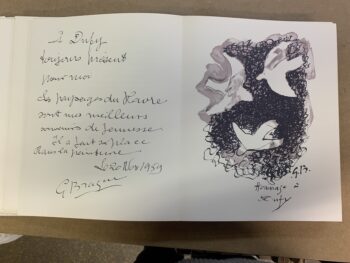 à Dufy
toujours présent
pour moi
Les paysages du Havre
sont mes meilleurs
souvenirs de jeunesse
Il a fait sa place
dans la peinture
Le 20 Nov 1959
G Braque
GB.
Hommage à
Dufy